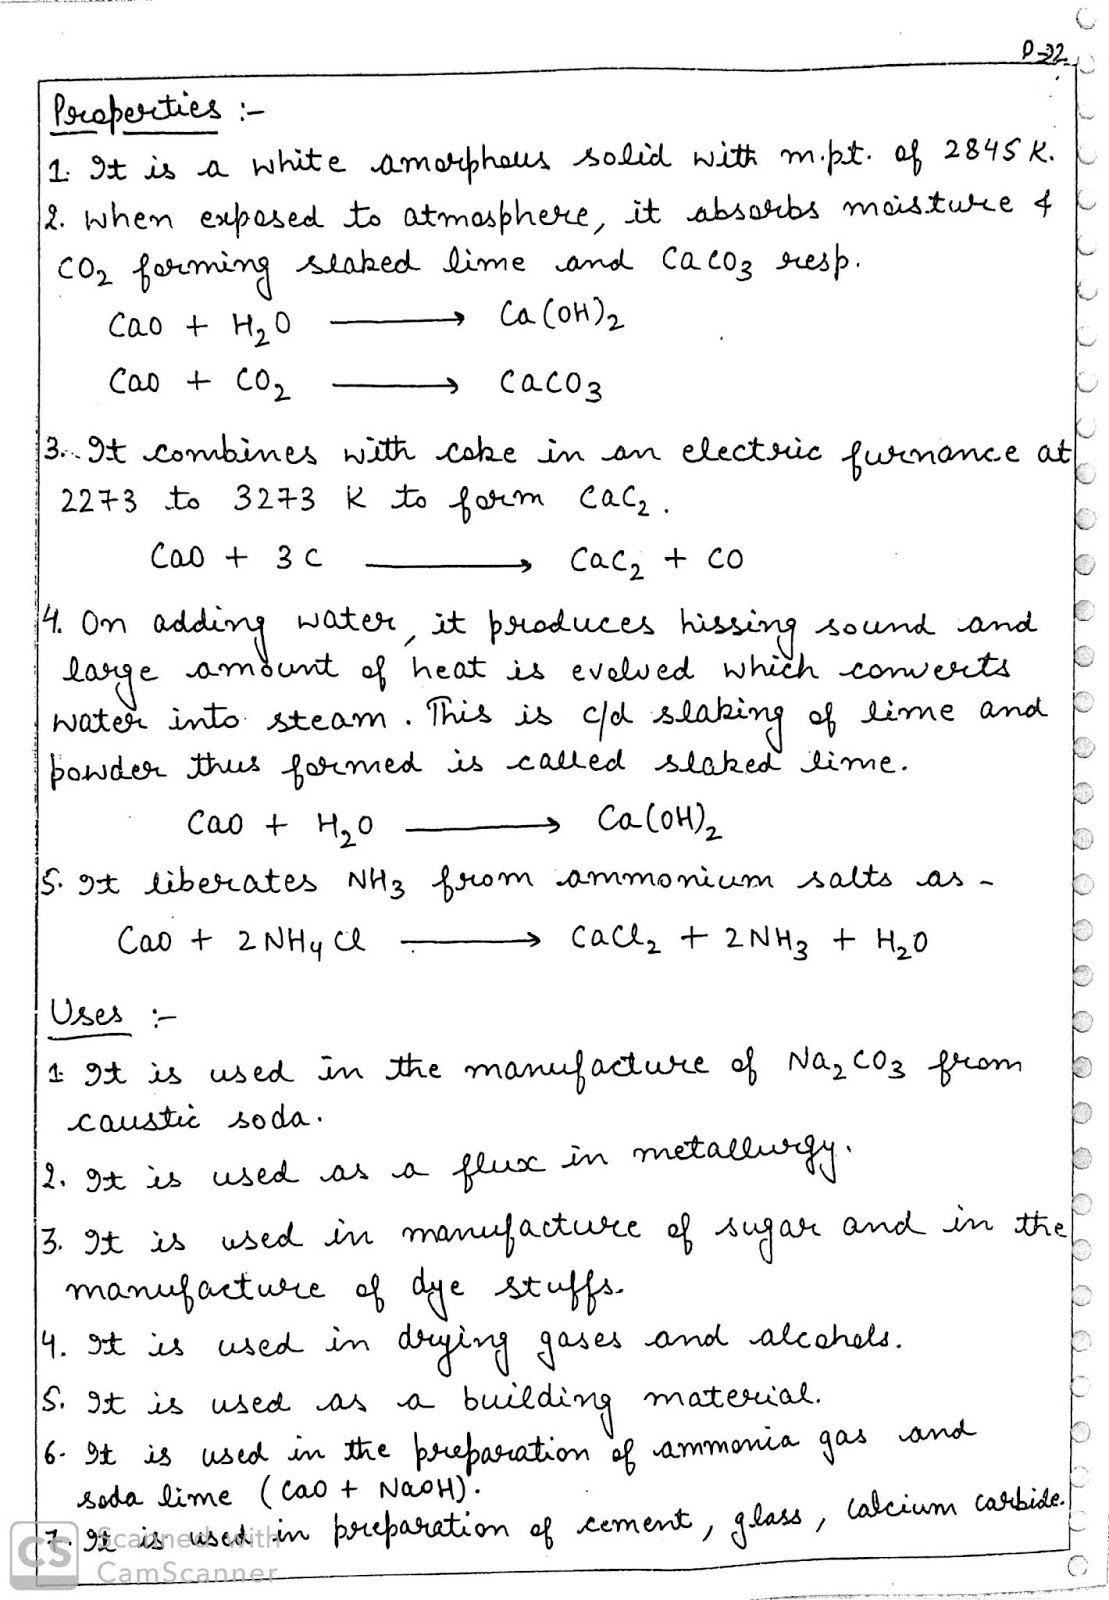 P-22
Properties :-
1. It is a white amorphous solid with m.pt. of 2845 K.
2. When exposed to atmosphere, it absorbs moisture &
CO₂ forming slaked lime and CaCO₃ resp.
CaO + H₂O ⟶ Ca(OH)₂
CaO + CO₂ ⟶ CaCO₃
3. It combines with coke in an electric furnance at
2273 to 3273 K to form CaC₂.
CaO + 3C ⟶ CaC₂ + CO
4. On adding water, it produces hissing sound and
large amount of heat is evolved which converts
water into steam. This is c/d slaking of lime and
powder thus formed is called slaked lime.
CaO + H₂O ⟶ Ca(OH)₂
5. It liberates NH₃ from ammonium salts as -
CaO + 2NH₄Cl ⟶ CaCl₂ + 2NH₃ + H₂O
Uses :-
1. It is used in the manufacture of Na₂CO₃ from
caustic soda.
2. It is used as a flux in metallurgy.
3. It is used in manufacture of sugar and in the
manufacture of dye stuffs.
4. It is used in drying gases and alcohols.
5. It is used as a building material.
6. It is used in the preparation of ammonia gas and
soda lime (CaO + NaOH).
7. It is used in preparation of cement, glass, calcium carbide.
CS Scanned with
CamScanner